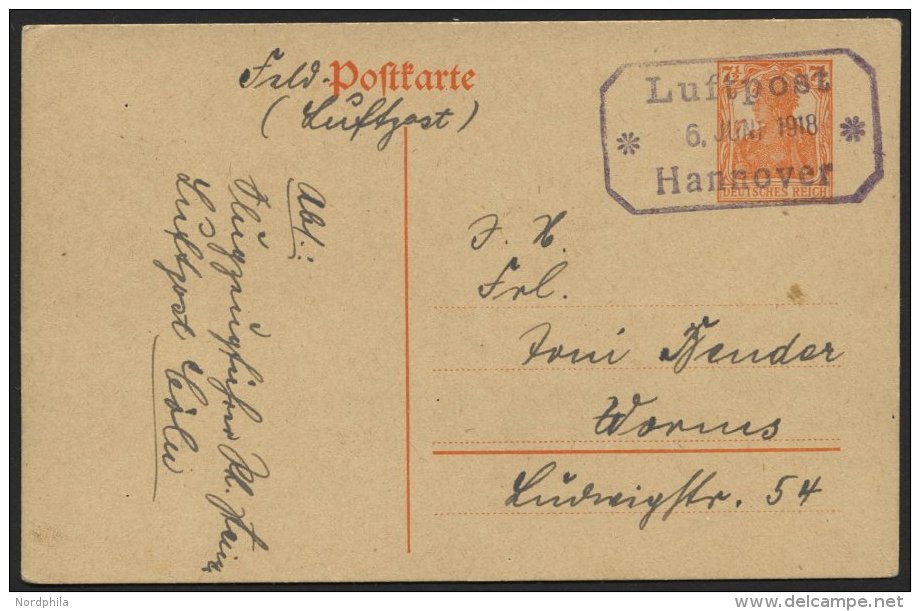 Feld-Postkarte
(Luftpost)
Luftpost
6. JUNI 1918
Hannover
7½ 7½
DEUTSCHES REICH
Abs.:
Flugzeugführer
Luftpost Cöln
Frl.
Toni Bender
Worms
Ludwigstr. 54
Nordphila
delcampe.net